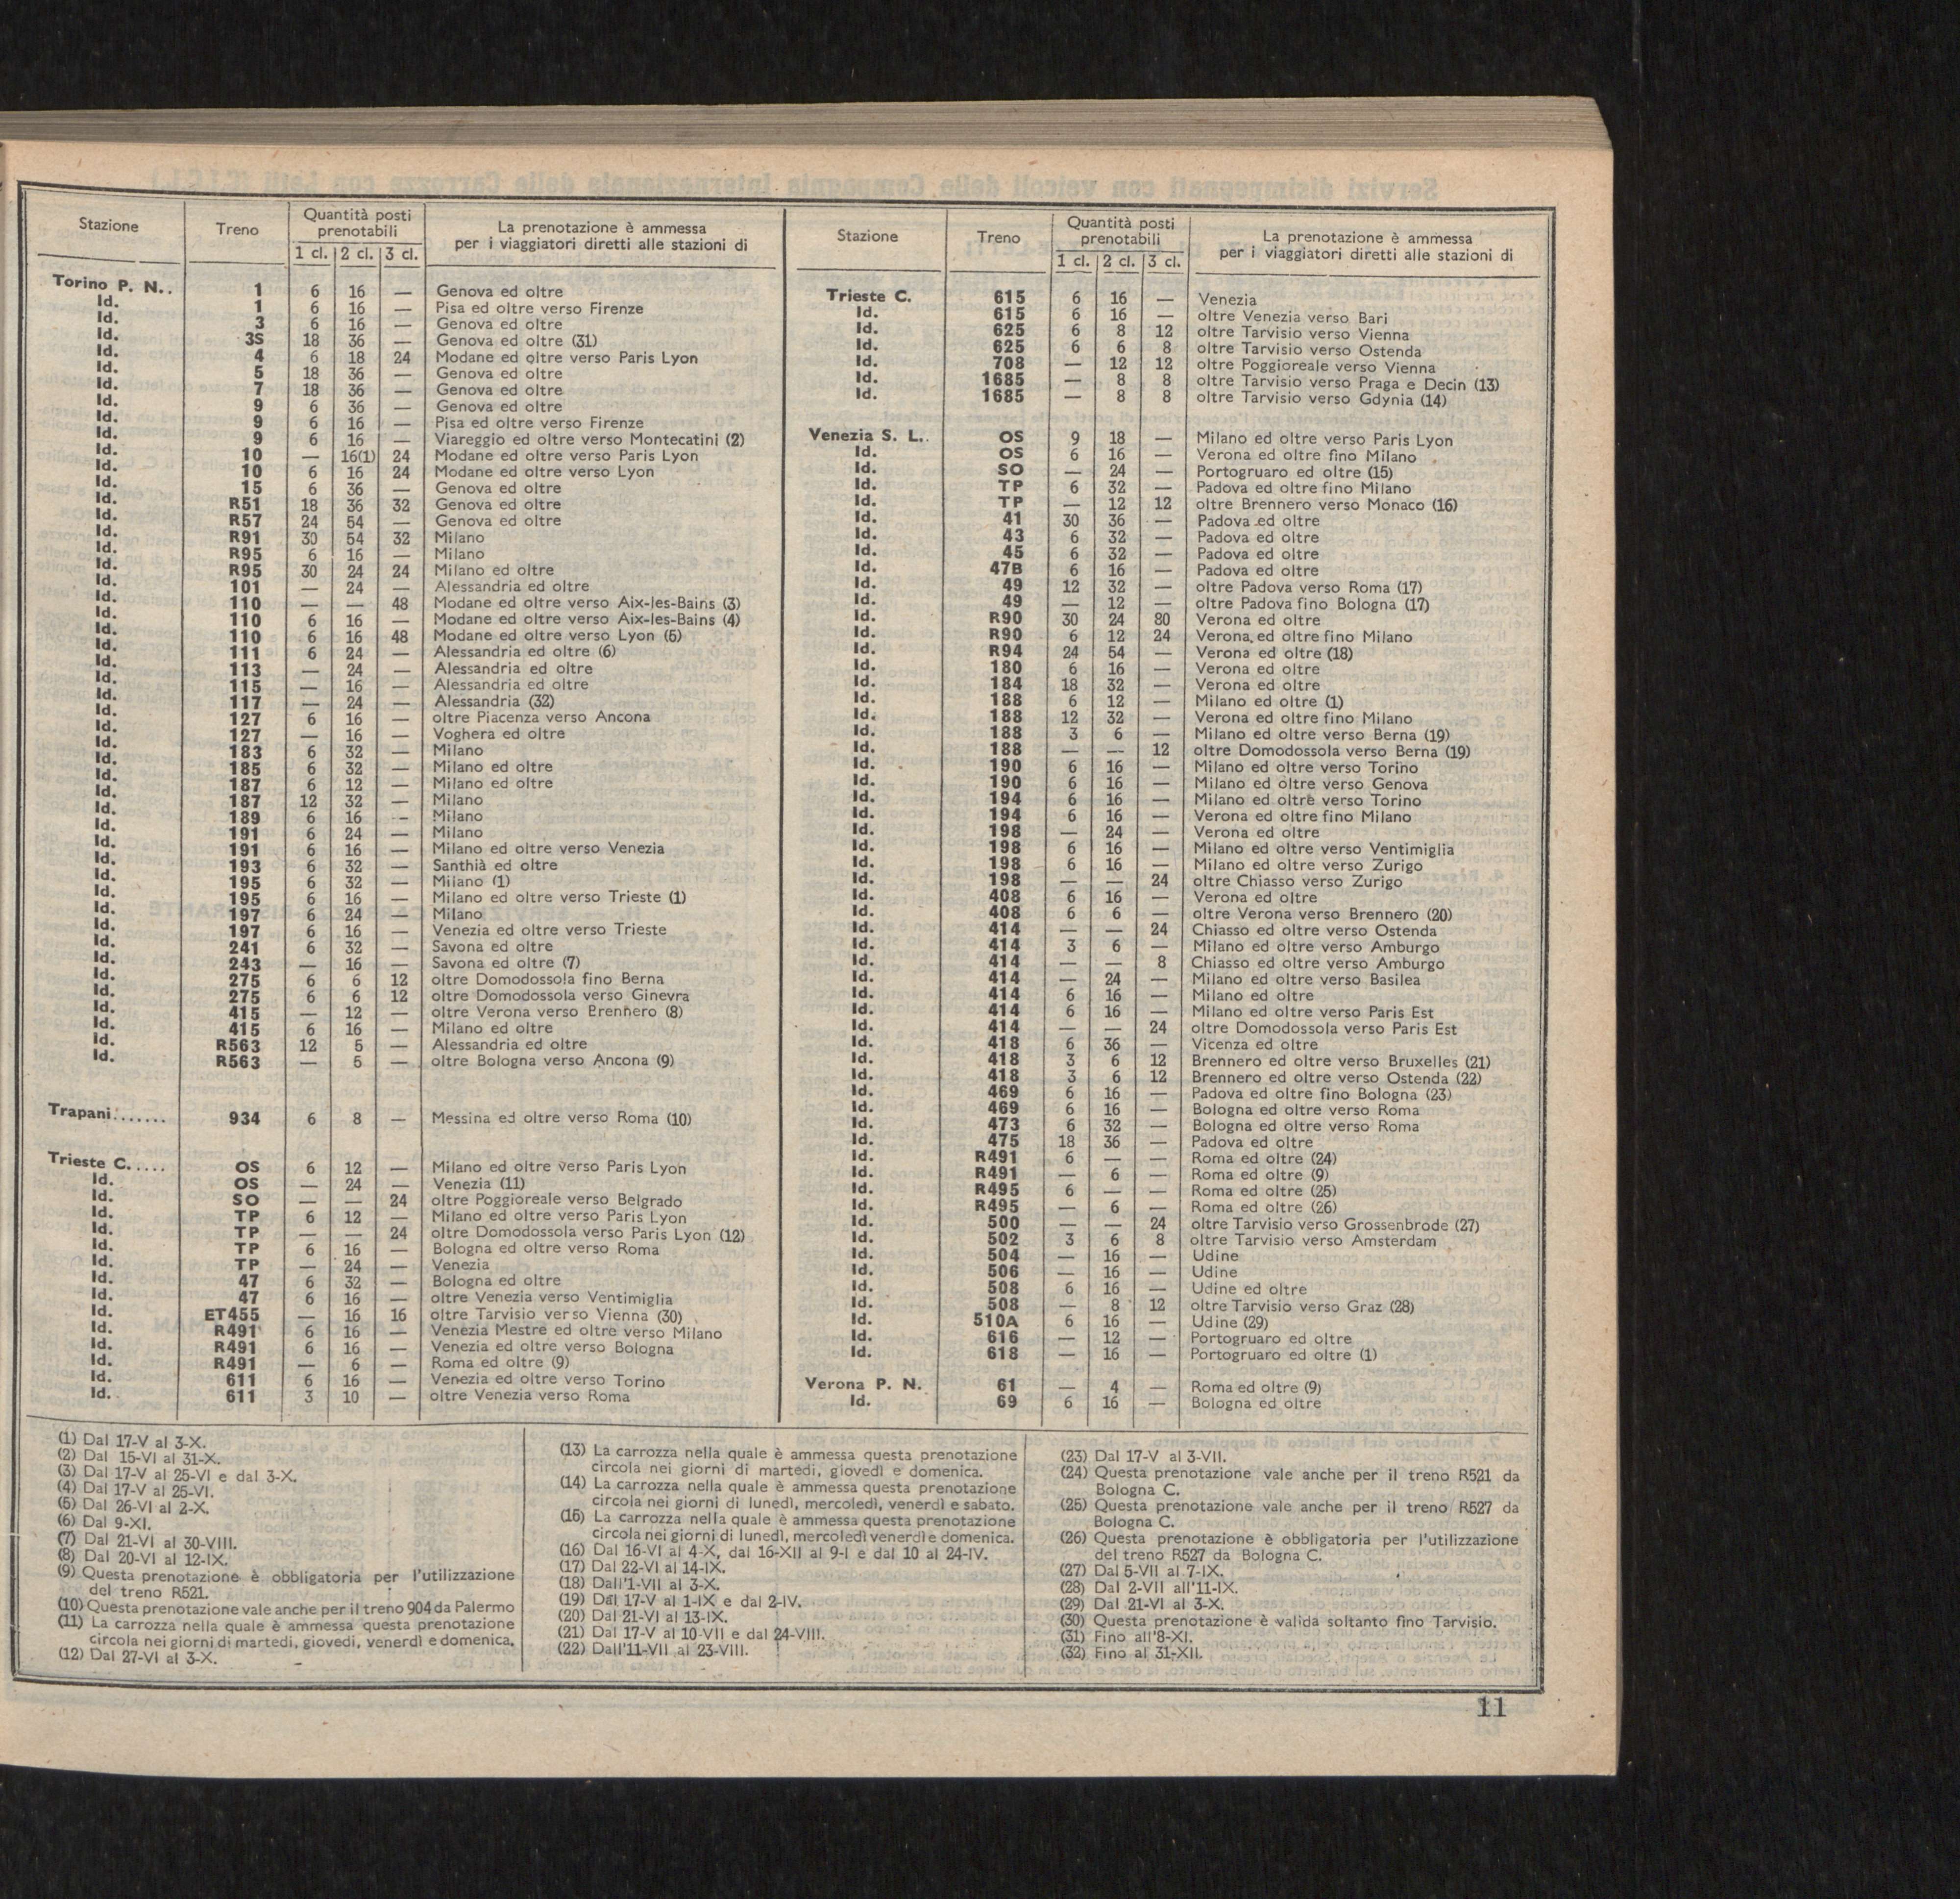 Stazione Treno Quantità posti prenotabili La prenotazione è ammessa per i viaggiatori diretti alle stazioni di
1 cl. 2 cl. 3 cl.
Torino P. N.. 1 6 16 — Genova ed oltre
Id. 1 6 16 — Pisa ed oltre verso Firenze
Id. 3 6 16 — Genova ed oltre
Id. 3S 18 36 — Genova ed oltre (31)
Id. 4 6 18 24 Modane ed oltre verso Paris Lyon
Id. 5 18 36 — Genova ed oltre
Id. 7 18 36 — Genova ed oltre
Id. 9 6 36 — Genova ed oltre
Id. 9 6 16 — Pisa ed oltre verso Firenze
Id. 9 6 16 — Viareggio ed oltre verso Montecatini (2)
Id. 10 — 16(1) 24 Modane ed oltre verso Paris Lyon
Id. 10 6 16 24 Modane ed oltre verso Lyon
Id. 15 6 36 — Genova ed oltre
Id. R51 18 36 32 Genova ed oltre
Id. R57 24 54 — Genova ed oltre
Id. R91 30 54 32 Milano
Id. R95 6 16 — Milano
Id. R95 30 24 24 Milano ed oltre
Id. 101 — 24 — Alessandria ed oltre
Id. 110 — — 48 Modane ed oltre verso Aix-les-Bains (3)
Id. 110 6 16 — Modane ed oltre verso Aix-les-Bains (4)
Id. 110 6 16 48 Modane ed oltre verso Lyon (5)
Id. 111 6 24 — Alessandria ed oltre (6)
Id. 113 — 24 — Alessandria ed oltre
Id. 115 — 16 — Alessandria ed oltre
Id. 117 — 24 — Alessandria (32)
Id. 127 6 16 — oltre Piacenza verso Ancona
Id. 127 — 16 — Voghera ed oltre
Id. 183 6 32 — Milano
Id. 185 6 32 — Milano ed oltre
Id. 187 6 12 — Milano ed oltre
Id. 187 12 32 — Milano
Id. 189 6 16 — Milano
Id. 191 6 24 — Milano
Id. 191 6 16 — Milano ed oltre verso Venezia
Id. 193 6 32 — Santhià ed oltre
Id. 195 6 32 — Milano (1)
Id. 195 6 16 — Milano ed oltre verso Trieste (1)
Id. 197 6 24 — Milano
Id. 197 6 16 — Venezia ed oltre verso Trieste
Id. 241 6 32 — Savona ed oltre
Id. 243 — 16 — Savona ed oltre (7)
Id. 275 6 6 12 oltre Domodossola fino Berna
Id. 275 6 6 12 oltre Domodossola verso Ginevra
Id. 415 — 12 — oltre Verona verso Brennero (8)
Id. 415 6 16 — Milano ed oltre
Id. R563 12 5 — Alessandria ed oltre
Id. R563 — 6 — oltre Bologna verso Ancona (9)
Trapani....... 934 6 8 — Messina ed oltre verso Roma (10)
Trieste C..... OS 6 12 — Milano ed oltre verso Paris Lyon
Id. OS — 24 — Venezia (11)
Id. SO — — 24 oltre Poggioreale verso Belgrado
Id. TP 6 12 — Milano ed oltre verso Paris Lyon
Id. TP — — 24 oltre Domodossola verso Paris Lyon (12)
Id. TP 6 16 — Bologna ed oltre verso Roma
Id. TP — 24 — Venezia
Id. 47 6 32 — Bologna ed oltre
Id. 47 6 16 — oltre Venezia verso Ventimiglia
Id. ET455 — 16 16 oltre Tarvisio verso Vienna (30)
Id. R491 6 16 — Venezia Mestre ed oltre verso Milano
Id. R491 6 16 — Venezia ed oltre verso Bologna
Id. R491 — 6 — Roma ed oltre (9)
Id. 611 6 16 — Venezia ed oltre verso Torino
Id. 611 3 10 — oltre Venezia verso Roma
Stazione Treno Quantità posti prenotabili La prenotazione è ammessa per i viaggiatori diretti alle stazioni di
1 cl. 2 cl. 3 cl.
Trieste C. 615 6 16 — Venezia
Id. 615 6 16 — oltre Venezia verso Bari
Id. 625 6 8 12 oltre Tarvisio verso Vienna
Id. 625 6 6 8 oltre Tarvisio verso Ostenda
Id. 708 — 12 12 oltre Poggioreale verso Vienna
Id. 1685 — 8 8 oltre Tarvisio verso Praga e Decin (13)
Id. 1685 — 8 8 oltre Tarvisio verso Gdynia (14)
Venezia S. L.. OS 9 18 — Milano ed oltre verso Paris Lyon
Id. OS 6 16 — Verona ed oltre fino Milano
Id. SO — 24 — Portogruaro ed oltre (15)
Id. TP 6 32 — Padova ed oltre fino Milano
Id. TP — 12 12 oltre Brennero verso Monaco (16)
Id. 41 30 36 — Padova ed oltre
Id. 43 6 32 — Padova ed oltre
Id. 45 6 32 — Padova ed oltre
Id. 47B 6 16 — Padova ed oltre
Id. 49 12 32 — oltre Padova verso Roma (17)
Id. 49 — 12 — oltre Padova fino Bologna (17)
Id. R90 30 24 80 Verona ed oltre
Id. R90 6 12 24 Verona ed oltre fino Milano
Id. R94 24 54 — Verona ed oltre (18)
Id. 180 6 16 — Verona ed oltre
Id. 184 18 32 — Verona ed oltre
Id. 188 6 12 — Milano ed oltre (1)
Id. 188 12 32 — Verona ed oltre fino Milano
Id. 188 3 6 — Milano ed oltre verso Berna (19)
Id. 188 — — 12 oltre Domodossola verso Berna (19)
Id. 190 6 16 — Milano ed oltre verso Torino
Id. 190 6 16 — Milano ed oltre verso Genova
Id. 194 6 16 — Milano ed oltre verso Torino
Id. 194 6 16 — Verona ed oltre fino Milano
Id. 198 — 24 — Verona ed oltre
Id. 198 6 16 — Milano ed oltre verso Ventimiglia
Id. 198 6 16 — Milano ed oltre verso Zurigo
Id. 198 — — 24 oltre Chiasso verso Zurigo
Id. 408 6 16 — Verona ed oltre
Id. 408 6 6 — oltre Verona verso Brennero (20)
Id. 414 — — 24 Chiasso ed oltre verso Ostenda
Id. 414 3 6 — Milano ed oltre verso Amburgo
Id. 414 — — 8 Chiasso ed oltre verso Amburgo
Id. 414 — 24 — Milano ed oltre verso Basilea
Id. 414 6 16 — Milano ed oltre
Id. 414 6 16 — Milano ed oltre verso Paris Est
Id. 414 — — 24 oltre Domodossola verso Paris Est
Id. 418 6 36 — Vicenza ed oltre
Id. 418 3 6 12 Brennero ed oltre verso Bruxelles (21)
Id. 418 3 6 12 Brennero ed oltre verso Ostenda (22)
Id. 469 6 16 — Padova ed oltre fino Bologna (23)
Id. 469 6 16 — Bologna ed oltre verso Roma
Id. 473 6 32 — Bologna ed oltre verso Roma
Id. 475 18 36 — Padova ed oltre
Id. R491 6 — — Roma ed oltre (24)
Id. R491 — 6 — Roma ed oltre (9)
Id. R495 6 — — Roma ed oltre (25)
Id. R495 — 6 — Roma ed oltre (26)
Id. 500 — — 24 oltre Tarvisio verso Grossenbrode (27)
Id. 502 3 6 8 oltre Tarvisio verso Amsterdam
Id. 504 — 16 — Udine
Id. 506 — 16 — Udine
Id. 508 6 16 — Udine ed oltre
Id. 508 — 8 12 oltre Tarvisio verso Graz (28)
Id. 510A 6 16 — Udine (29)
Id. 616 — 12 — Portogruaro ed oltre
Id. 618 — 16 — Portogruaro ed oltre (1)
Verona P. N. 61 — 4 — Roma ed oltre (9)
Id. 69 6 16 — Bologna ed oltre
(1) Dal 17-V al 3-X.
(2) Dal 15-VI al 31-X.
(3) Dal 17-V al 25-VI e dal 3-X.
(4) Dal 17-V al 25-VI.
(5) Dal 26-VI al 2-X.
(6) Dal 9-XI.
(7) Dal 21-VI al 30-VIII.
(8) Dal 20-VI al 12-IX.
(9) Questa prenotazione è obbligatoria per l'utilizzazione
del treno R521.
(10) Questa prenotazione vale anche per il treno 904 da Palermo
(11) La carrozza nella quale è ammessa questa prenotazione
circola nei giorni di martedì, giovedì, venerdì e domenica.
(12) Dal 27-VI al 3-X.
(13) La carrozza nella quale è ammessa questa prenotazione
circola nei giorni di martedi, giovedì e domenica.
(14) La carrozza nella quale è ammessa questa prenotazione
circola nei giorni di lunedì, mercoledì, venerdì e sabato.
(15) La carrozza nella quale è ammessa questa prenotazione
circola nei giorni di lunedì, mercoledì venerdì e domenica.
(16) Dal 16-VI al 4-X, dal 16-XII al 9-I e dal 10 al 24-IV.
(17) Dal 22-VI al 14-IX.
(18) Dall'1-VII al 3-X.
(19) Dal 17-V al 1-IX e dal 2-IV.
(20) Dal 21-VI al 13-IX.
(21) Dal 17-V al 10-VII e dal 24-VIII.
(22) Dall'11-VII al 23-VIII.
(23) Dal 17-V al 3-VII.
(24) Questa prenotazione vale anche per il treno R521 da
Bologna C.
(25) Questa prenotazione vale anche per il treno R527 da
Bologna C.
(26) Questa prenotazione è obbligatoria per l'utilizzazione
del treno R527 da Bologna C.
(27) Dal 5-VII al 7-IX.
(28) Dal 2-VII all'11-IX.
(29) Dal 21-VI al 3-X.
(30) Questa prenotazione è valida soltanto fino Tarvisio.
(31) Fino all'8-XI.
(32) Fino al 31-XII.
11